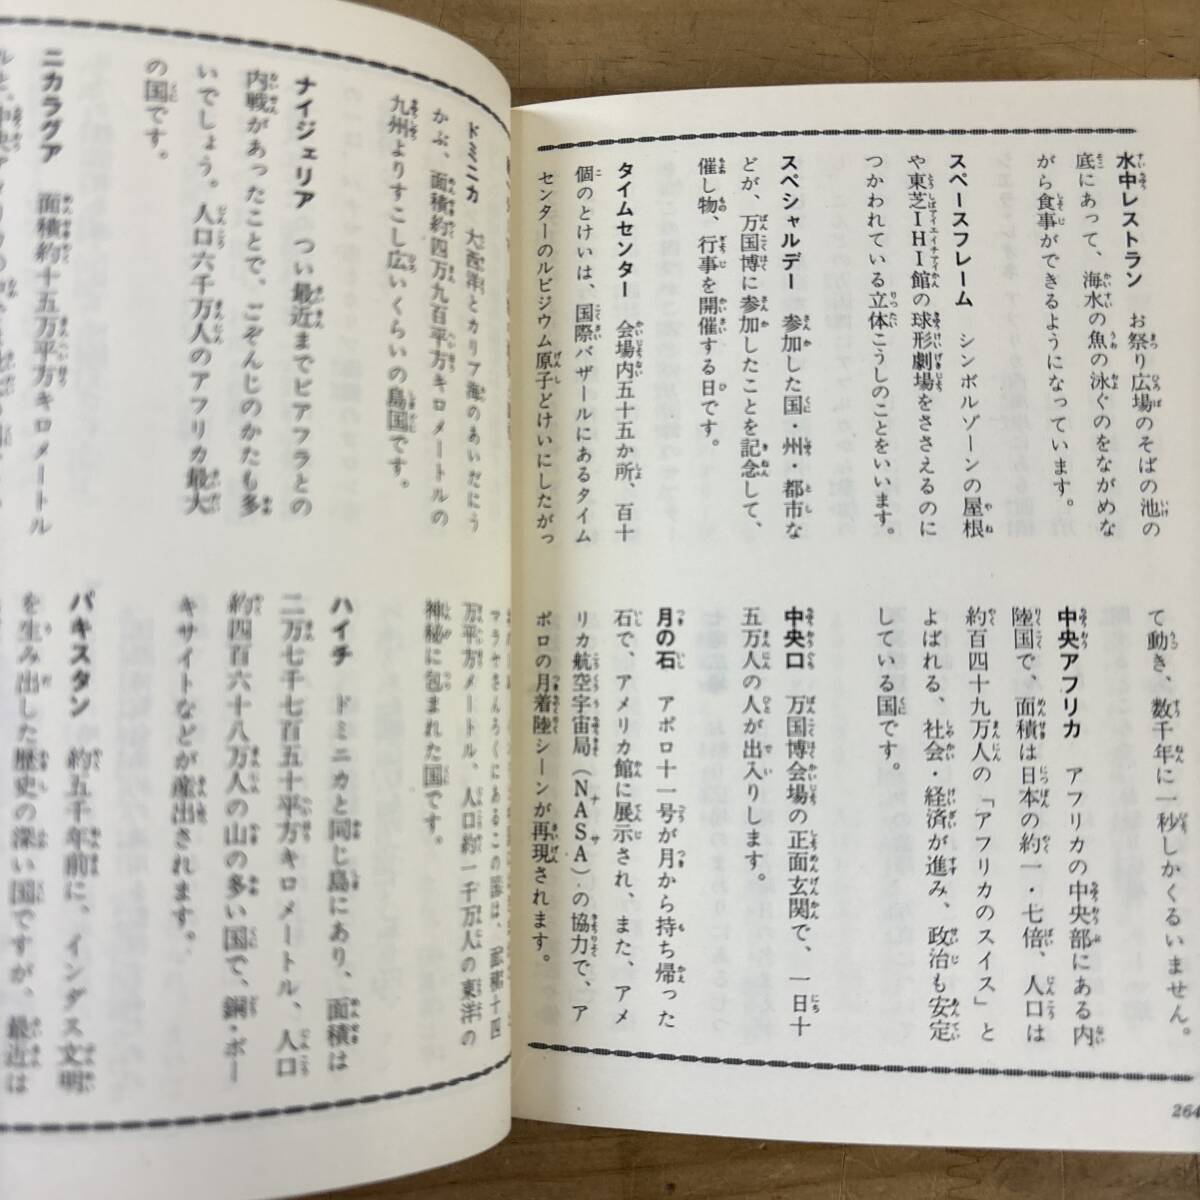 水中レストラン　お祭り広場のそばの池の
底にあって、海水の魚の泳ぐのをながめな
がら食事ができるようになっています。
スペースフレーム　シンボルゾーンの屋根
や東芝ＩＨＩ館の球形劇場をささえるのに
つかわれている立体こうしのことをいいます。
スペシャルデー　参加した国・州・都市な
どが、万国博に参加したことを記念して、
催し物、行事を開催する日です。
タイムセンター　会場内五十五か所、百十
個のとけいは、国際バザールにあるタイム
センターのルビジウム原子どけいにしたがっ
て動き、数千年に一秒しかくるいません。
中央アフリカ　アフリカの中央部にある内
陸国で、面積は日本の約一・七倍、人口は
約百四十九万人の「アフリカのスイス」と
よばれる、社会・経済が進み、政治も安定
している国です。
中央口　万国博会場の正面玄関で、一日十
五万人の人が出入りします。
月の石　アポロ十一号が月から持ち帰った
石で、アメリカ館に展示され、また、アメ
リカ航空宇宙局（ＮＡＳＡ）の協力で、ア
ポロの月着陸シーンが再現されます。
264
ドミニカ　大西洋とカリブ海のあいだにう
かぶ、面積約四万九百平方キロメートルの
九州よりすこし広いくらいの島国です。
ナイジェリア　つい最近までビアフラとの
内戦があったことで、ごぞんじのかたも多
いでしょう。人口六千万人のアフリカ最大
の国です。
ニカラグア　面積約十五万平方キロメートル
万平方メートル、人口約一千万人の東洋の
神秘に包まれた国です。
ハイチ　ドミニカと同じ島にあり、面積は
二万七千七百五十平方キロメートル、人口
約四百六十八万人の山の多い国で、銅・ボー
キサイトなどが産出されます。
パキスタン　約五千年前に、インダス文明
を生み出した歴史の深い国ですが、最近は